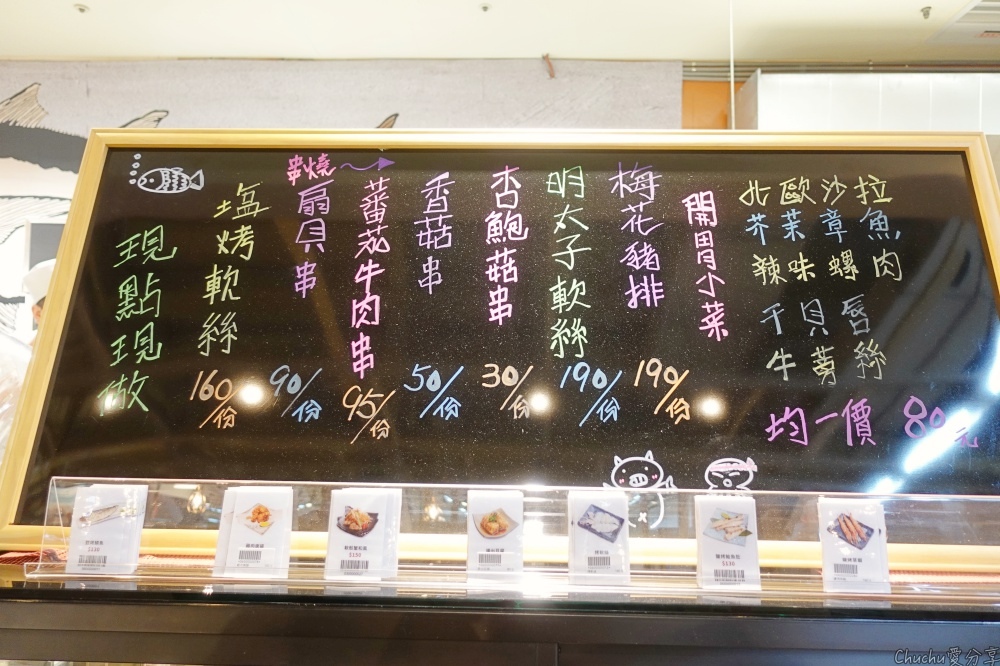 現點現做
塩烤軟絲
160/份
串燒
扇貝串
90/份
蕃茄牛肉串
95/份
香菇串
50/份
杏鮑菇串
30/份
明太子軟絲
190/份
梅花豬排
190/份
開胃小菜
北歐沙拉
芥茉章魚
辣味螺肉
干貝唇
牛蒡絲
均一價 80元
Chuchu愛分享